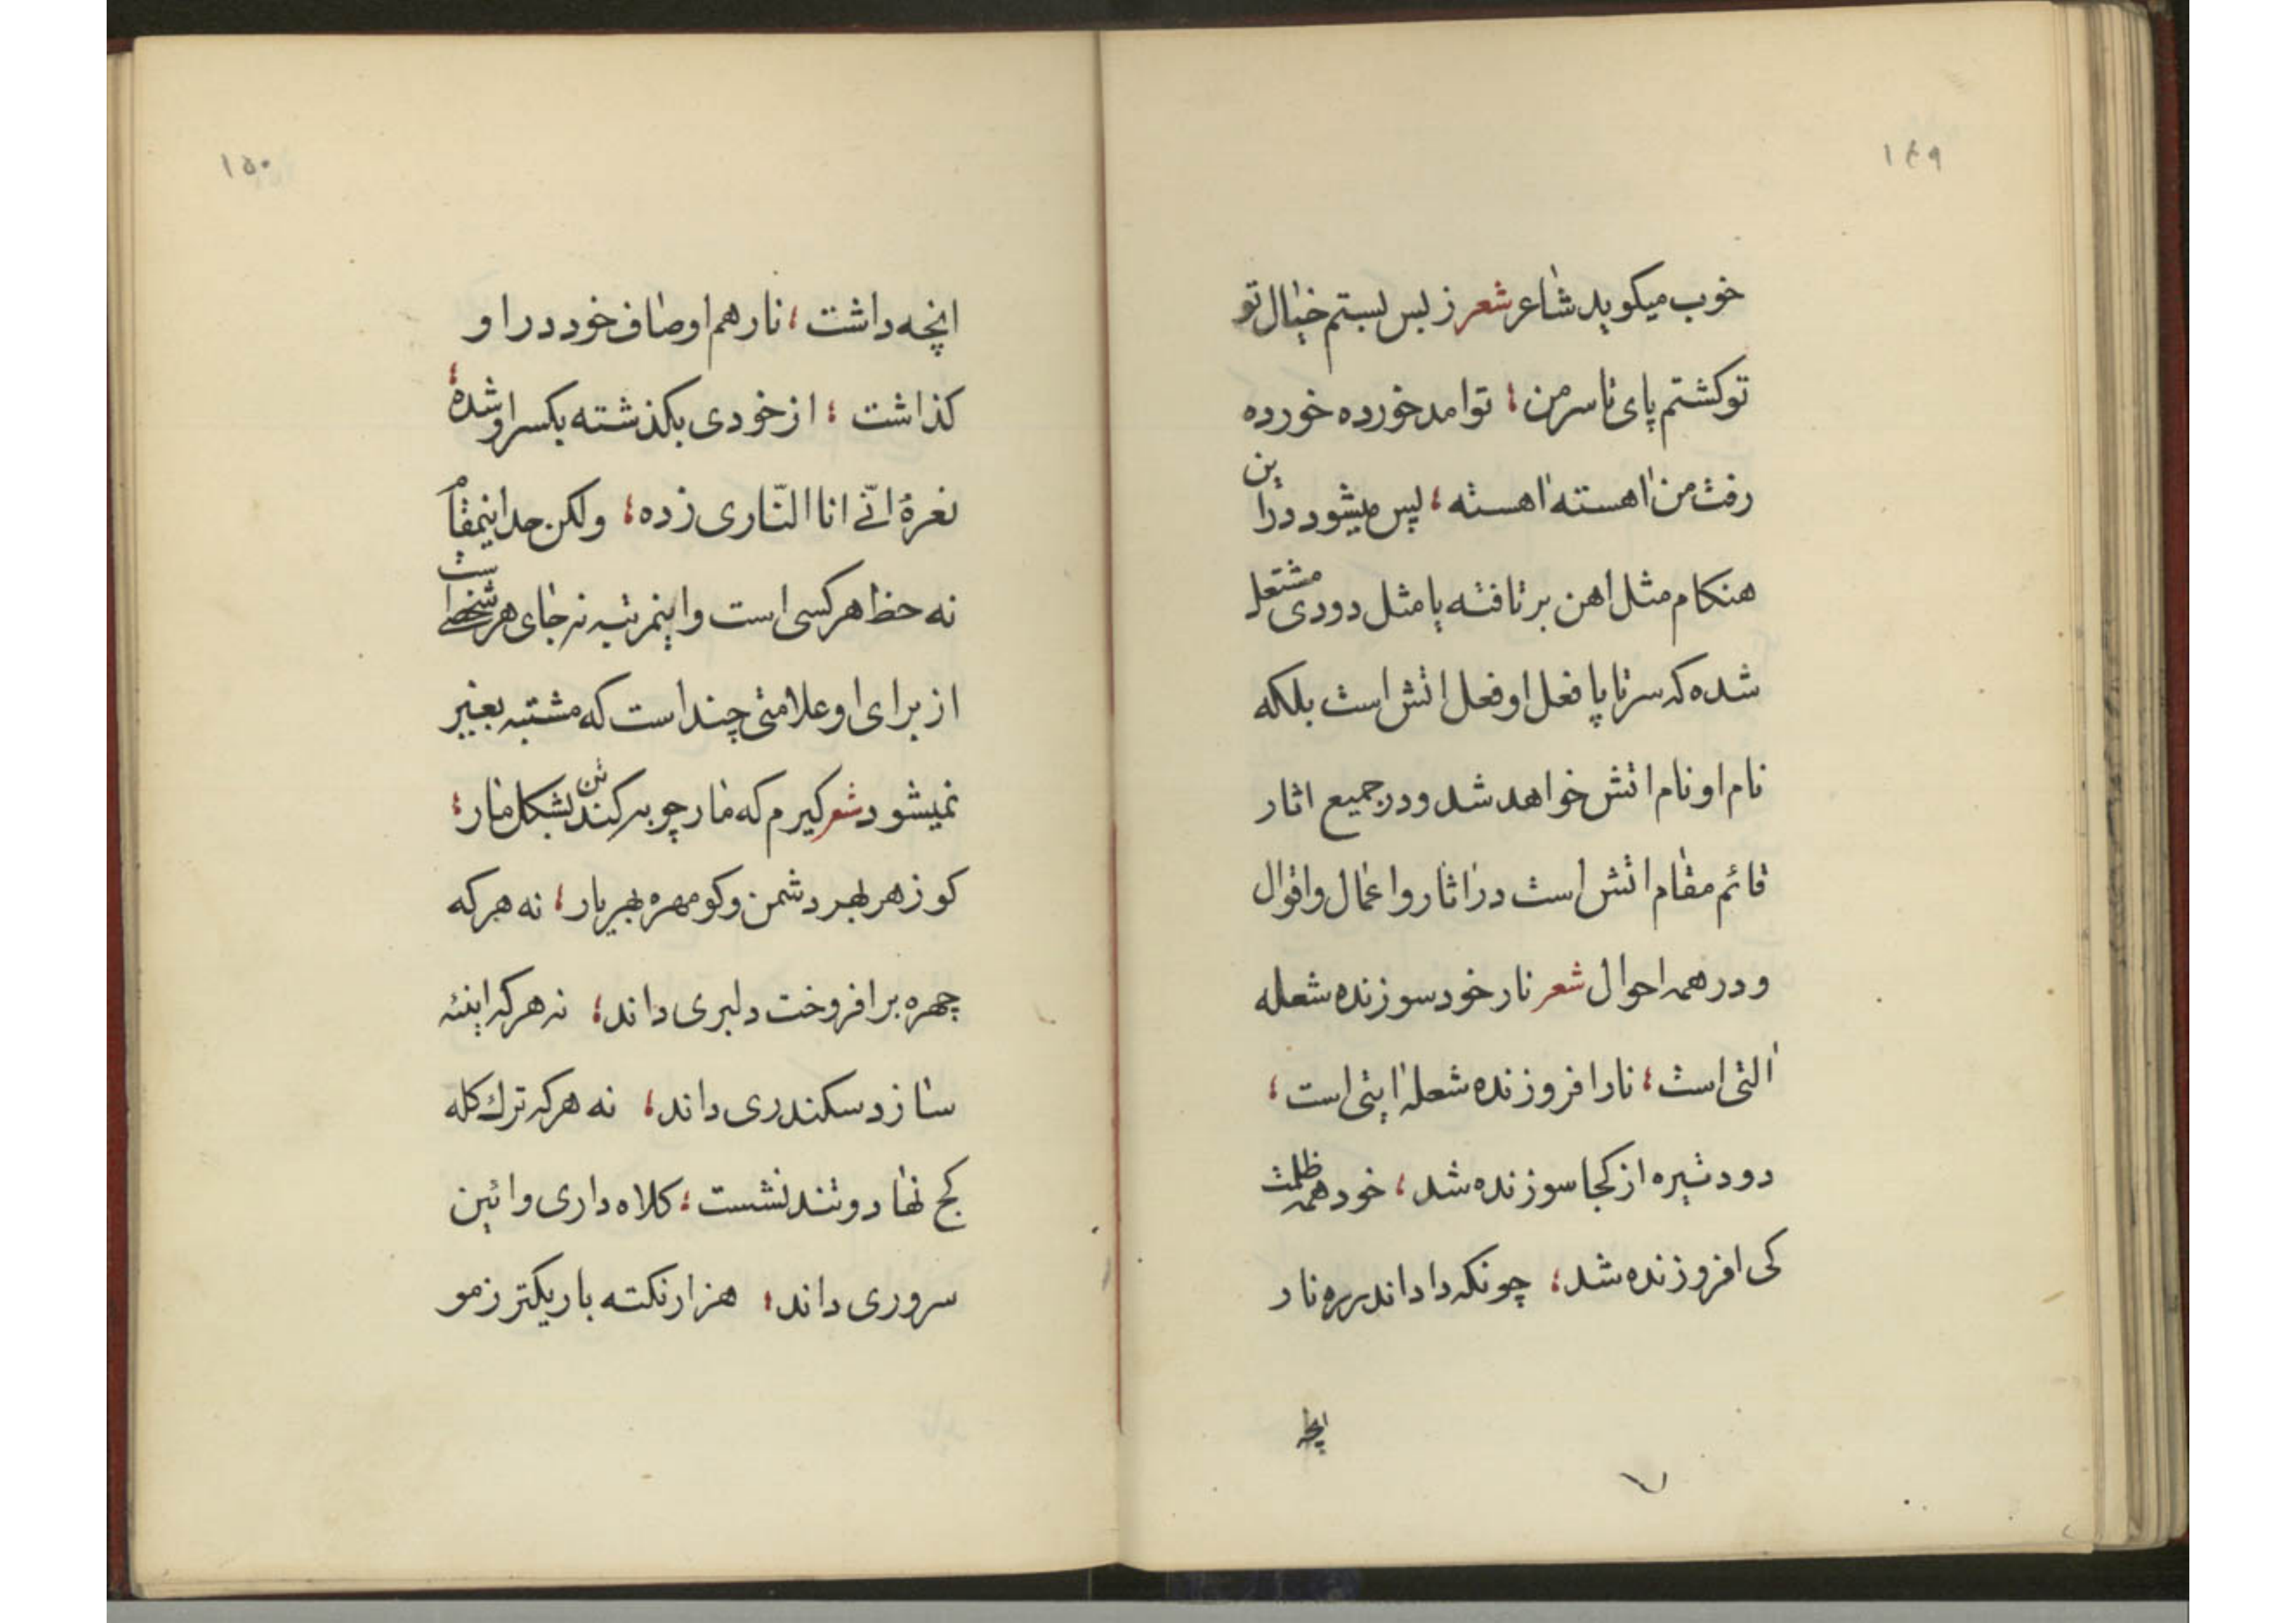 ۱۴۹
خوب میکوید شاعر شعر ز بس بستم خیال تو
تو کشتم پای تا سر من ؛ تو امد خورده خورده
رفت من اهسته اهسته ؛ پس میشود در این
هنکام مثل اهن بر تافته یا مثل دودی مشتعل
شده که سر تا پا فعل او فعل اتش است بلکه
نام او نام اتش خواهد شد و در جمیع اثار
قائم مقام اتش است در اثار و اعمال و اقوال
و در همه احوال شعر نار خود سوزنده شعله
التی است ؛ نار افروزنده شعله ایتی است ؛
دود تیره از کجا سوزنده شد ؛ خود همه ظلمت
کی افروزنده شد ؛ چونکه داد اندر ره نار
انچه
۱۵۰
انچه داشت ؛ نار هم اوصاف خود در او
کذاشت ؛ از خودی بکذشته یکسر او شده ؛
نعرهٔ انّی انا النّاری زده ؛ ولکن حد اینمقام
نه حظ هر کسی است و اینمرتبه نه جای هر شخصی است
از برای او علامتی چند است که مشتبه بغیر
نمیشود شعر کیرم که مار چوبه کند تن بشکل مار ؛
کو زهر بهر دشمن و کو مهره بهر یار ؛ نه هر که
چهره بر افروخت دلبری داند ؛ نه هر که اینه
سازد سکندری داند ؛ نه هر که ترک کله
کج نهاد و تند نشست ؛ کلاه داری و ائین
سروری داند ؛ هزار نکته باریکتر ز مو